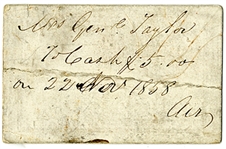 Mrs Genl. Taylor
To Cash £5.00
on 22 Novr 1858